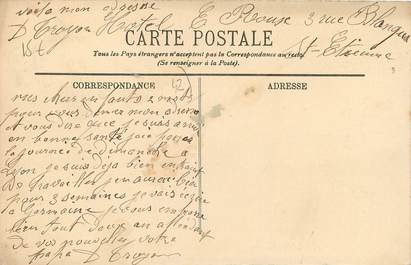 voila mon adresse
D Troyon Hotel E Rouse 3 rue Blanqui
St-Etienne
15f
CARTE POSTALE
Tous les Pays étrangers n'acceptent pas la Correspondance au recto.
(Se renseigner à la Poste).
CORRESPONDANCE
42
ADRESSE
mes chers enfants 2 mots
pour vous donner mon adresse
et vous dire que je suis arrivé
en bonne santé jai passé
la journée de dimanche a
Lyon je suis deja bien entrain
de travailler jen aurai bien
pour 3 semaines je vais ecrire
a Germaine je vous embrasse
bien tout deux en attendant
de vos nouvelles votre
papa D Troyon